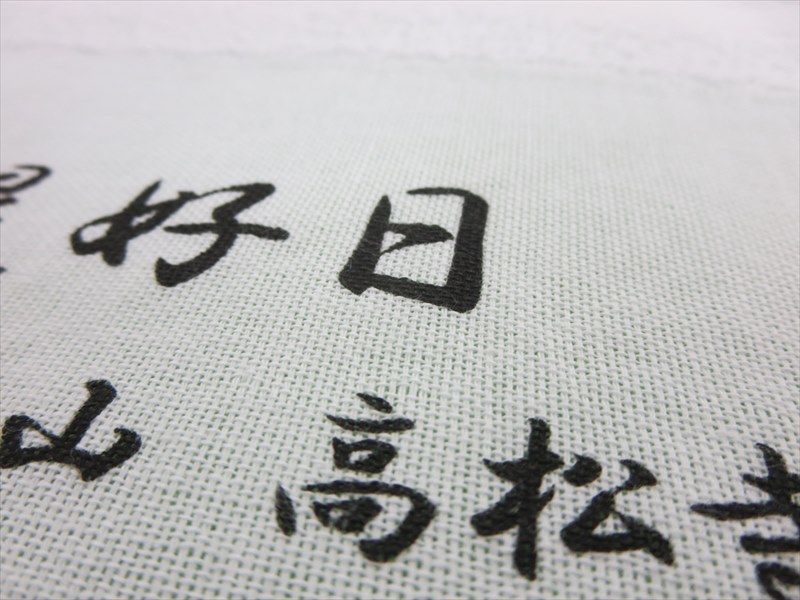 好日
山 高松